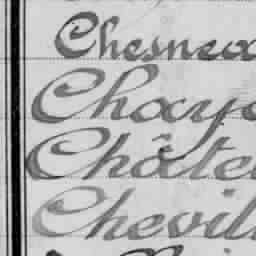 Chesnea
Chay
Châte
Chevil